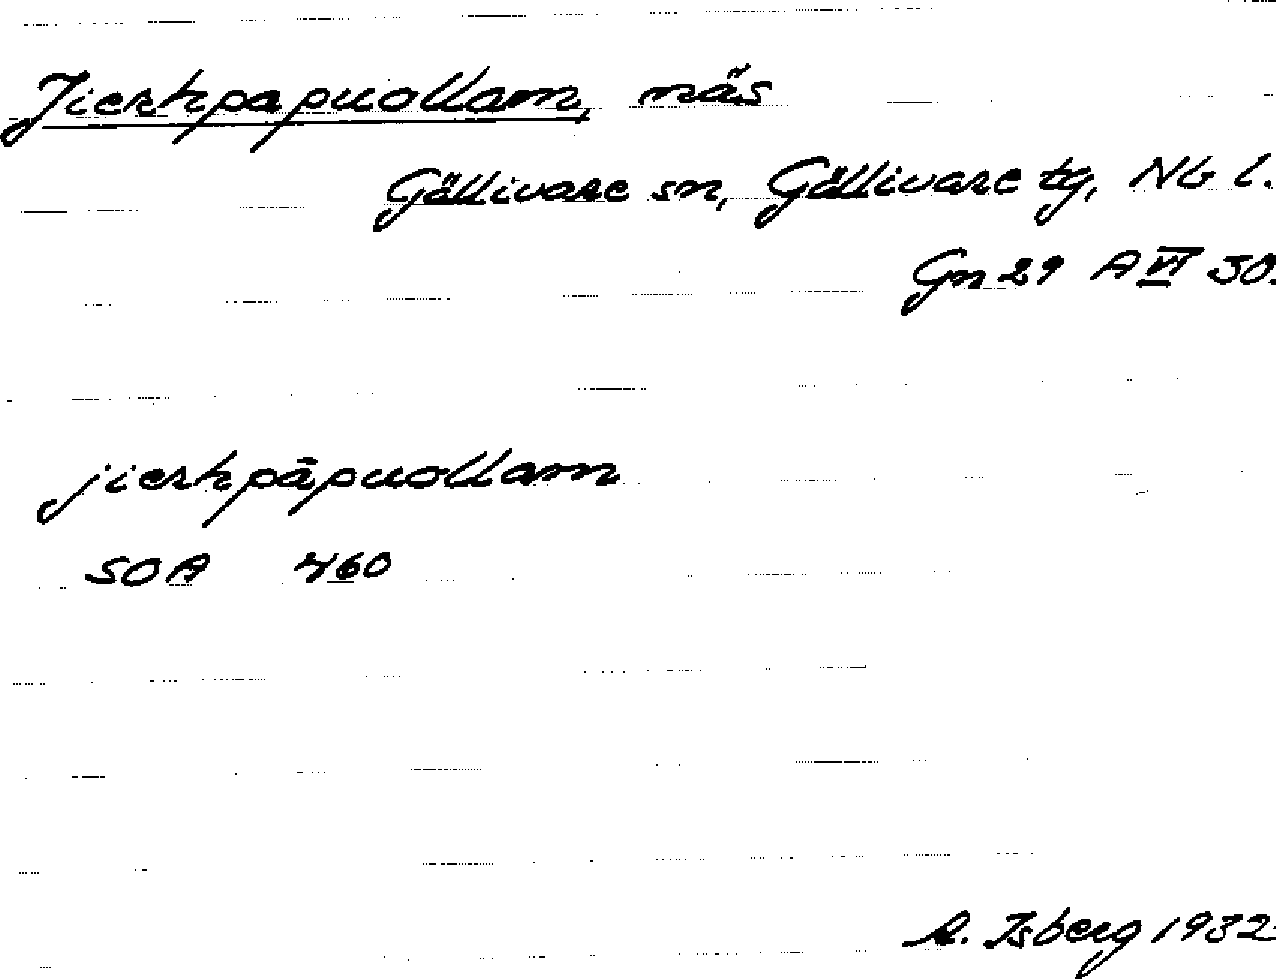 Jierhpapuollam, näs
Gällivare sn, Gällivare tg, Nb l.
Gn 29 A VI 50.
jierhpāpuollam
SOA 460
A. Isberg 1932